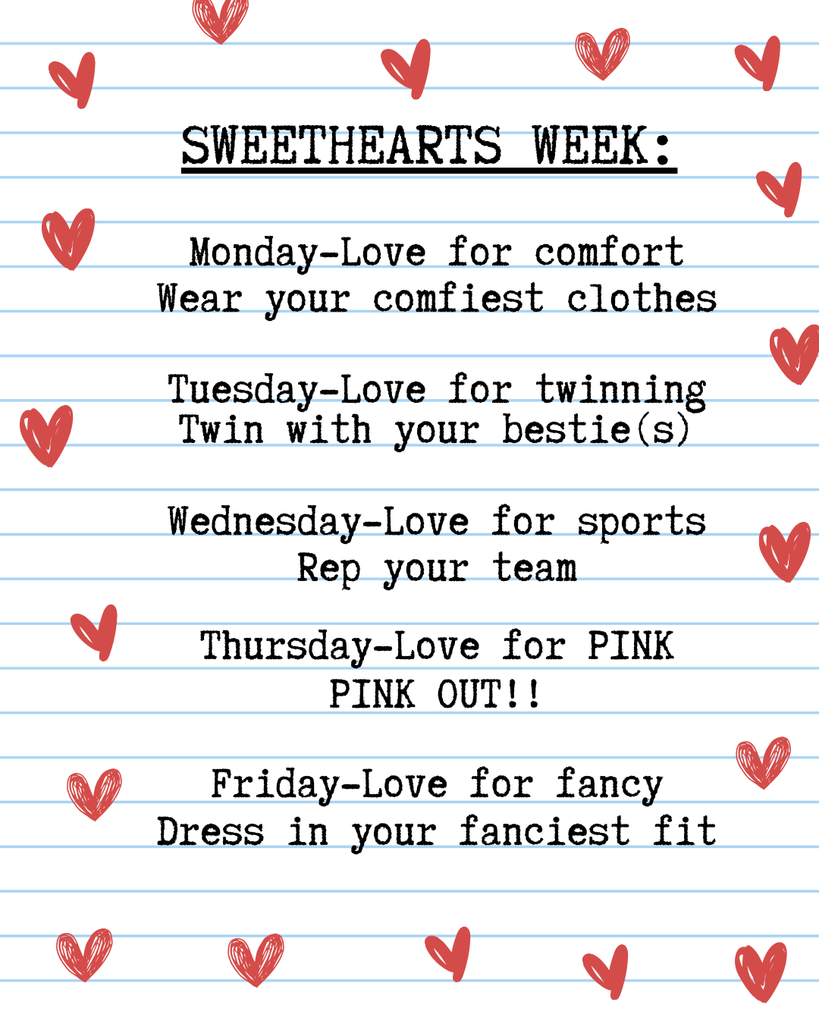 SWEETHEARTS WEEK:
Monday-Love for comfort
Wear your comfiest clothes
Tuesday-Love for twinning
Twin with your bestie(s)
Wednesday-Love for sports
Rep your team
Thursday-Love for PINK
PINK OUT!!
Friday-Love for fancy
Dress in your fanciest fit